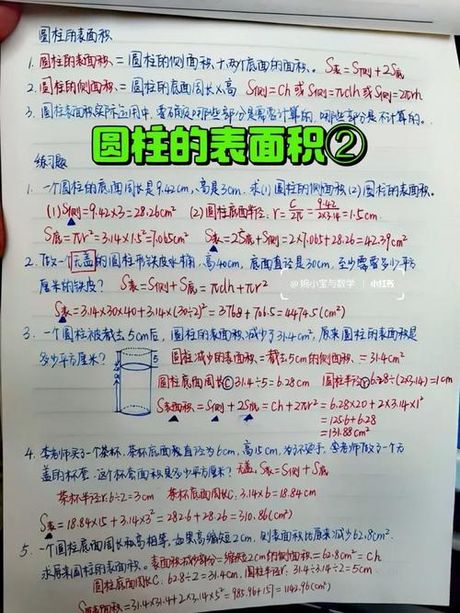 圆柱的表面积
1. 圆柱的表面积 = 圆柱的侧面积 + 两个底面的面积。 S表=S侧+2S底
2. 圆柱的侧面积 = 圆柱的底面周长×高 S侧=Ch 或 S侧=πdh 或 S侧=2πrh
3. 圆柱表面积实际运用中，要明确哪些部分是需要计算的，哪些部分是不计算的。
圆柱的表面积②
练习题
1. 一个圆柱的底面周长是9.42cm，高是3cm。求(1)圆柱的侧面积(2)圆柱的表面积。
(1)S侧=9.42×3=28.26cm² (2)圆柱底面半径. r=C/2π=9.42/2×3.14=1.5cm
S底=πr²=3.14×1.5²=7.065cm² S表=2S底+S侧=2×7.065+28.26=42.39cm²
2. 做一个无盖的圆柱形铁皮水桶，高40cm，底面直径是30cm，至少需要多少平方
厘米的铁皮？ S表=S侧+S底=πdh+πr²
@婉小宝与数学 小红书
S表=3.14×30×40+3.14×(30÷2)²=3768+706.5=4474.5(cm²)
3. 一个圆柱被截去5cm后，圆柱的表面积减少了31.4cm²，原来圆柱的表面积是
多少平方厘米？ 圆柱减少的表面积=截去5cm的侧面积=31.4cm²
圆柱底面周长C 31.4÷5=6.28cm 圆柱半径r 6.28÷(2×3.14)=1cm
S表面积=S侧+2S底=Ch+2πr²=6.28×20+2×3.14×1²
=125.6+6.28
=131.88cm²
4. 李老师买了一个茶杯，茶杯底面直径为6cm，高15cm，为了不烫手，李老师做了一个无
盖的杯套，这个杯套面积是多少平方厘米？ 无盖，S表=S侧+S底
茶杯半径r. 6÷2=3cm 茶杯底面周长C. 3.14×6=18.84cm
S表=18.84×15+3.14×3²=282.6+28.26=310.86(cm²)
5. 一个圆柱底面周长和高相等，如果高缩短2cm，则表面积比原来减少62.8cm²，
求原来圆柱的表面积。 表面积减少部分=缩短2cm的侧面积=62.8cm²=Ch
圆柱底面周长C. 62.8÷2=31.4cm, 圆柱半径r. 31.4÷3.14÷2=5cm
S表面积=31.4×31.4+2×3.14×5²=985.96+157=1142.96(cm²)